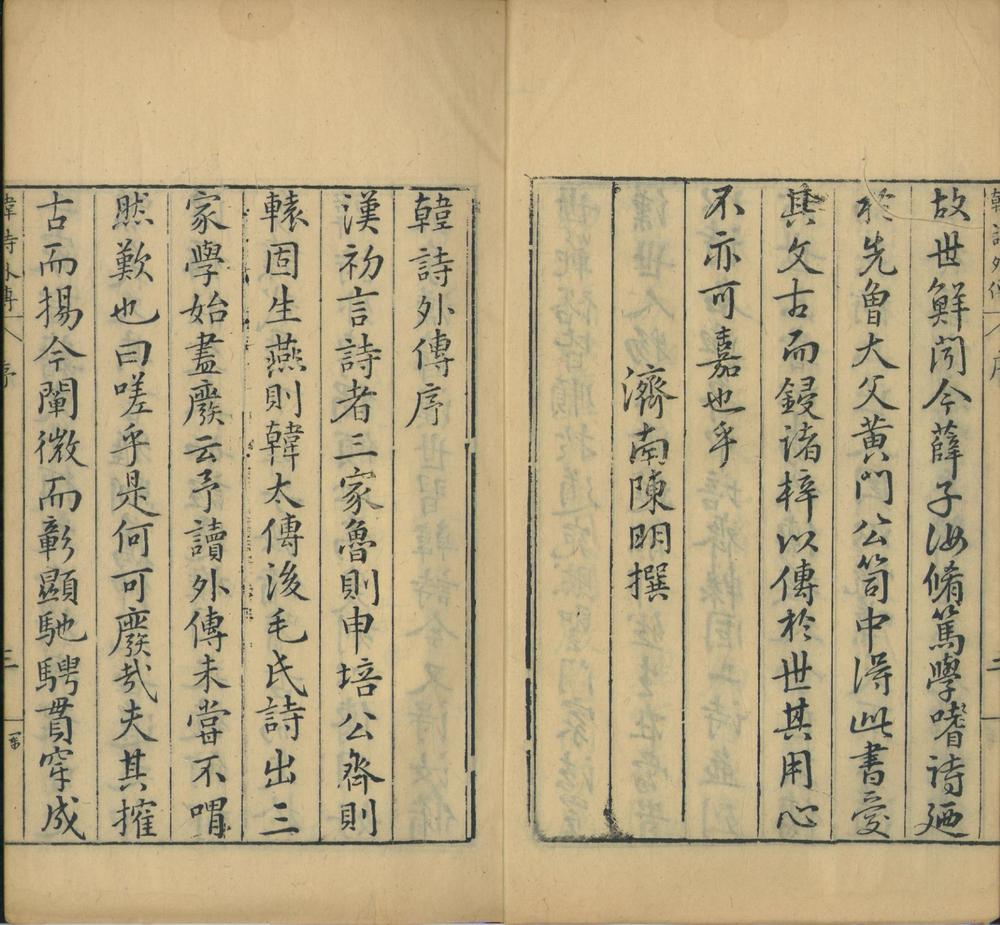 故世鮮聞今薛子汝脩篤學嗜詩廼
於先魯大父黃門公笥中得此書愛
其文古而鋟諸梓以傳於世其用心
不亦可嘉也乎
濟南陳明撰
韓詩外傳序
漢初言詩者三家魯則申培公齊則
轅固生燕則韓太傅後毛氏詩出三
家學始盡廢云予讀外傳未嘗不喟
然歎也曰嗟乎是何可廢哉夫其搉
古而揚今闡微而彰顯馳騁貫穿成
韓詩外傳 序 三